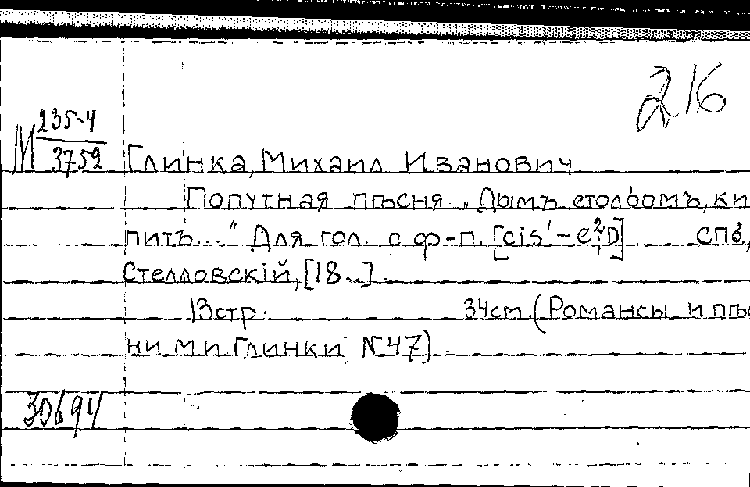 216
М 235-4
3752
Глинка, Михаил Иванович
Попутная пѣсня „Дымъ столбомъ, ки
питъ..." Для гол. с ф-п. [cis'-e²; D] СПб,
Стелловскій, [18..]
13стр. 34см (Романсы и пѣ
ни М И Глинки N 47)
30694